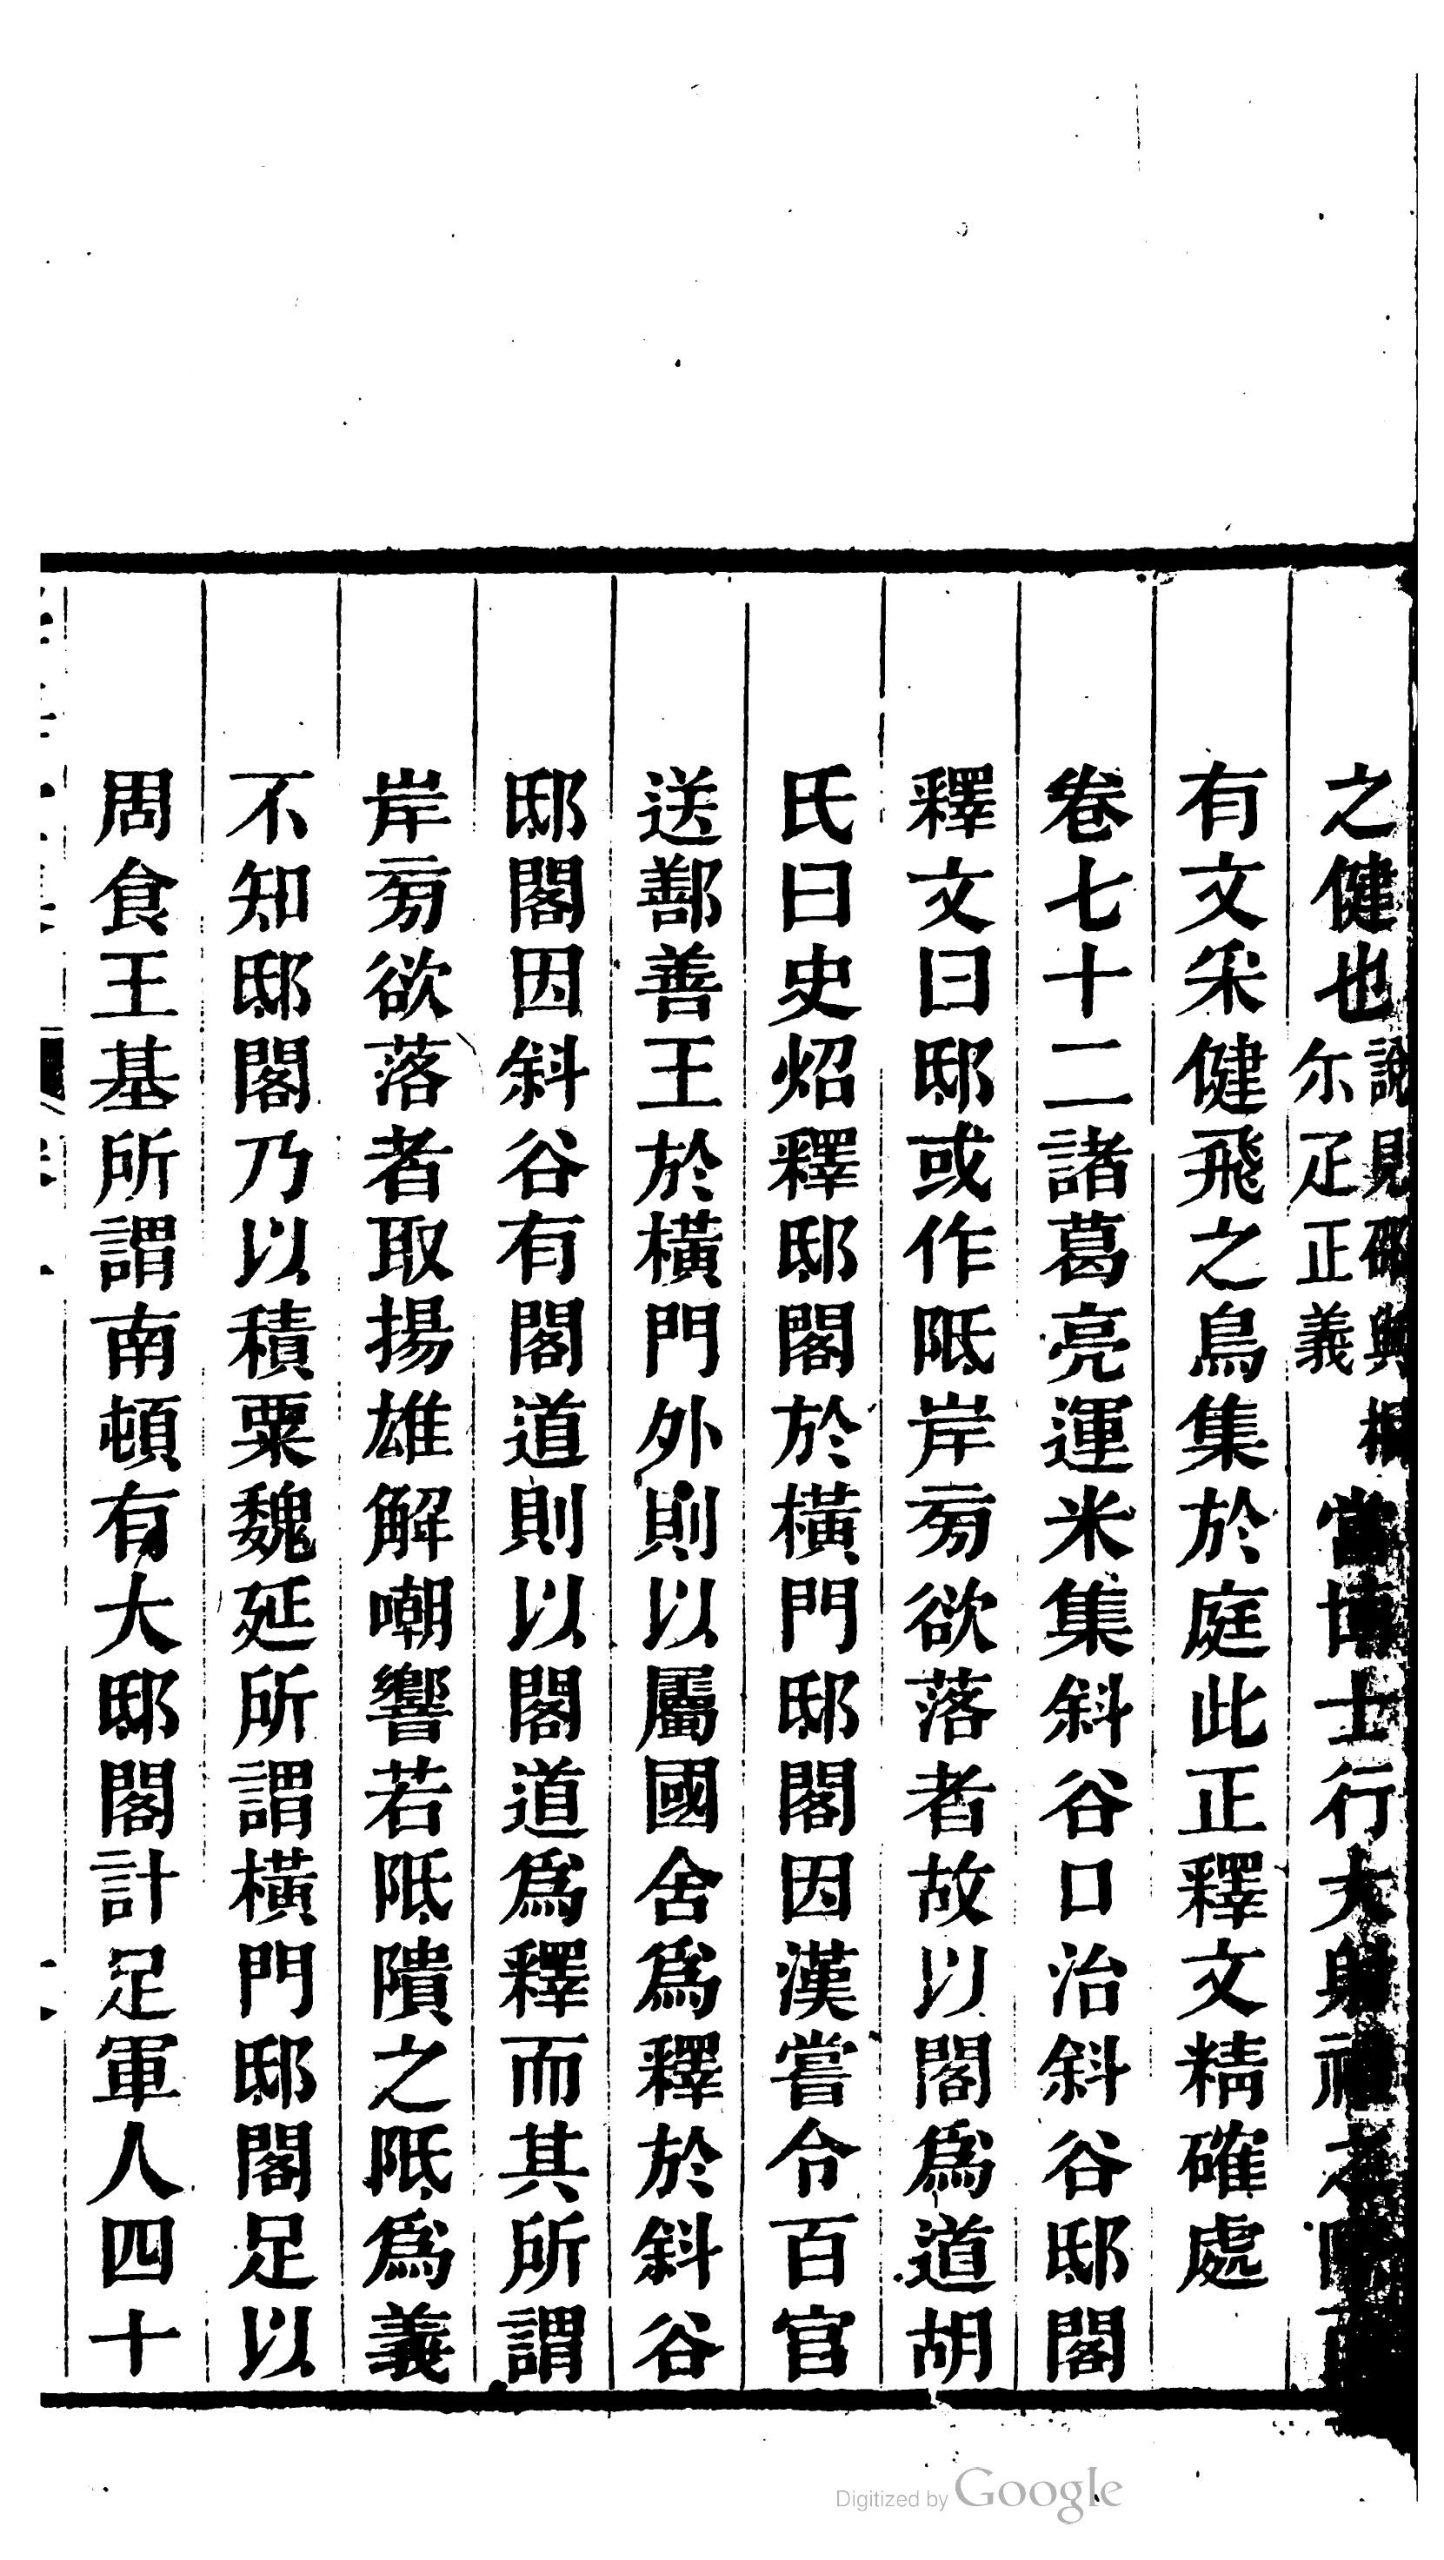 之健也說見邵與桐尒疋正義當博士行大射禮之時而
有文采健飛之鳥集於庭此正釋文精確處
卷七十二諸葛亮運米集斜谷口治斜谷邸閣
釋文曰邸或作阺岸旁欲落者故以閣爲道胡
氏曰史炤釋邸閣於橫門邸閣因漢嘗令百官
送鄯善王於橫門外則以屬國舍爲釋於斜谷
邸閣因斜谷有閣道則以閣道爲釋而其所謂
岸旁欲落者取揚雄解嘲響若阺隤之阺爲義
不知邸閣乃以積粟魏延所謂橫門邸閣足以
周食王基所謂南頓有大邸閣計足軍人四十
Digitized by Google